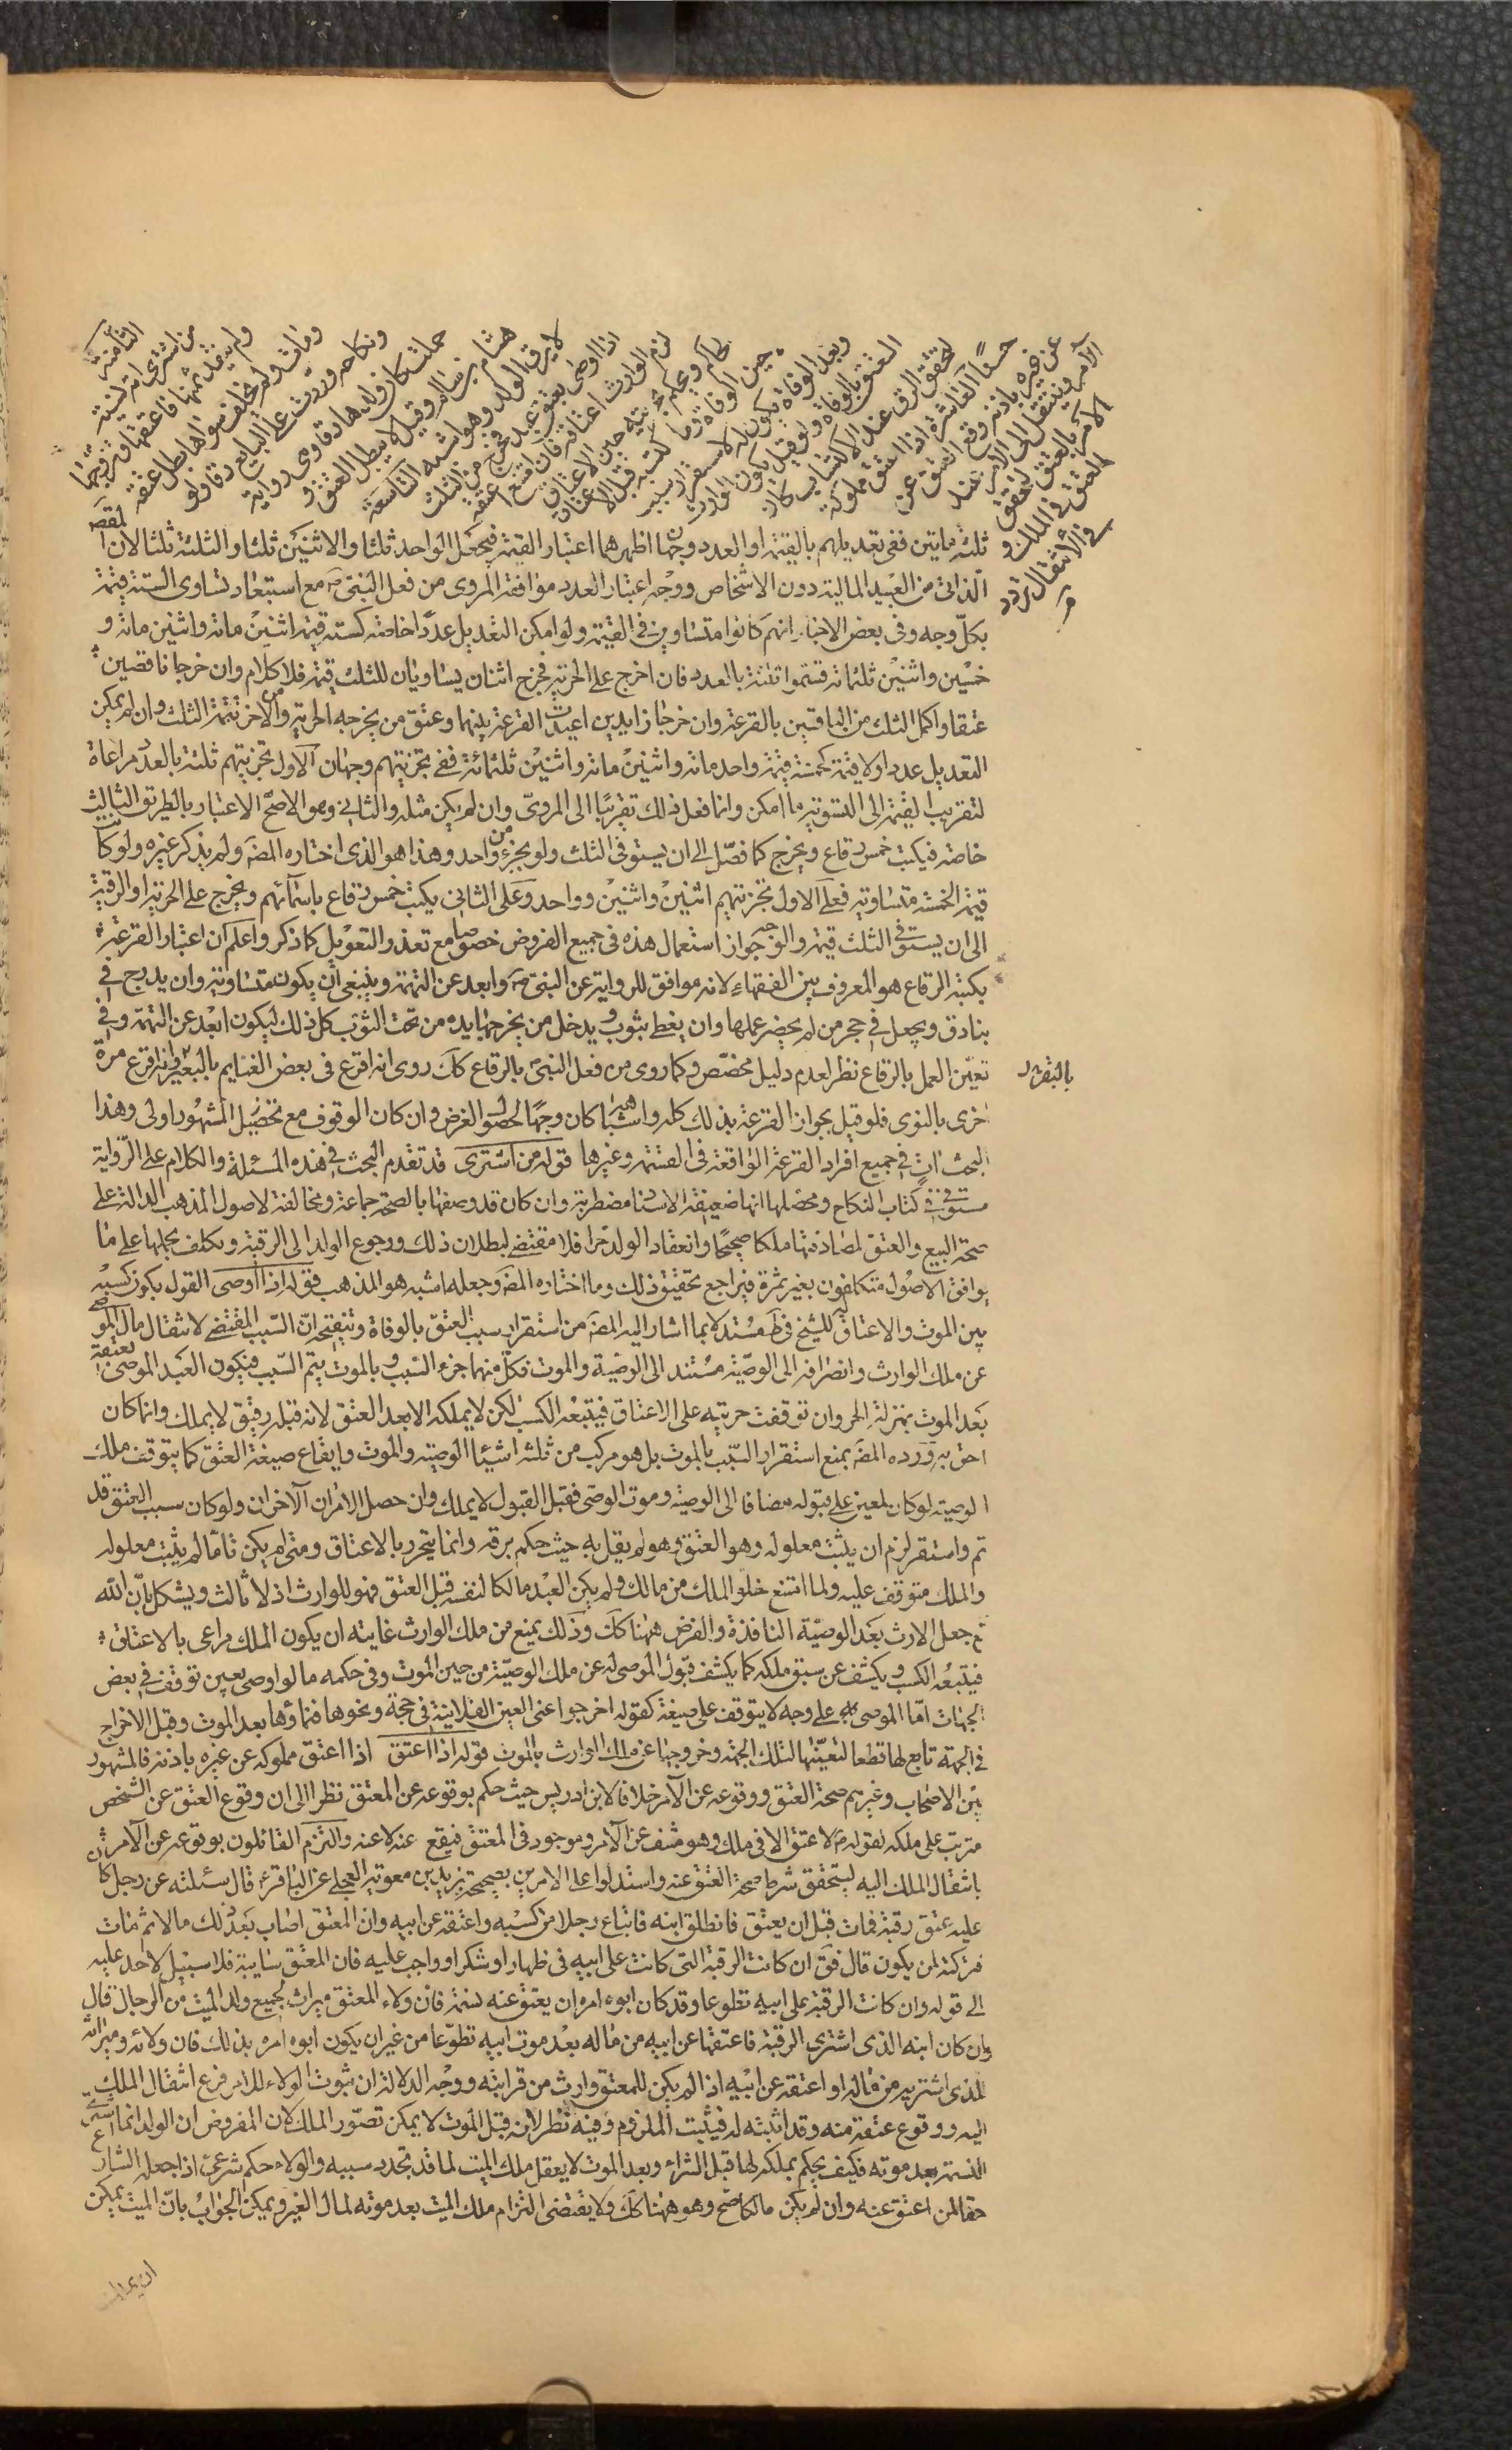 الثامنة
من اشترى امة نسيئة
ولم ينقد ثمنها فاعتقها وتزوجها
ومات ولم يخلف سواها بطل عتقه
ونكاحه وردت على البايع رقا ولو
حملت كان ولدها رقا وهي رواية
هشام بن سالم وقيل لا يبطل العتق و
لا يرق الولد وهو اشبه التاسعة
اذا اوصى بعتق عبد فخرج من الثلث
لزم الوارث اعتاقه فان امتنع اعتقه
الحاكم ويحكم بحريته حين الاعتاق
حين الوفاة وما كسبه قبل الاعتاق
وبعد الوفاة يكون له لاستقرار سبب
العتق بالوفاة ولو قيل يكون للوارث
لتحقق الرق عند الاكتساب كان
حسنا العاشرة اذا اعتق مملوكه
عن غيره باذنه وقع العتق عن
الآمر وينتقل الى الآمر عند
الامر بالعتق ليتحقق
العتق في الملك و
في الانتقال تردد
ثلثه مايتين ففي تعديلهم بالقيمة او العدد وجهان اظهرهما اعتبار القيمة فيجعل الواحد ثلثا والاثنين ثلثا والثلثة ثلثا لان المقصد
الذاتي من العبيد المالية دون الاشخاص ووجه اعتبار العدد موافقة المروي من فعل النبي ص مع استبعاد تساوى الستة قيمة
بكل وجه وفى بعض الاخبار انهم كانوا متساوين في القيمة ولو امكن التعديل عددا خاصة كستة قيمة اثنين مائة واثنين مائة و
خمسين واثنين ثلثمائة قسموا ثلثة بالعدد فان اخرج على الحرية فخرج اثنان يساويان للثلث قيمة فلا كلام وان خرجا ناقصين
عتقا واكمل الثلث من الباقين بالقرعة وان خرجا زايدين اعيدت القرعة بينهما وعتق من يخرجه الحرية ومن الاخر تتمة الثلث وان لم يمكن
التعديل عددا ولا قيمة كخمسة قيمة واحد مائة واثنين مائة واثنين ثلثمائة ففي تجزيتهم وجهان الاول تجزيتهم ثلثة بالعدد مراعاة
لتقريب القيمة الى التسوية ما امكن وانما فعل ذلك تقريبا الى المروي وان لم يكن مثله والثاني وهو الاصح الاعتبار بالطريق الثالث
خاصة فيكتب خمس رقاع ويخرج كما فصل الى ان يستوفى الثلث ولو بجزء من واحد وهذا هو الذي اختاره المصَ ولم يذكر غيره ولو كانت
قيمة الخمسة متساوية فعلى الاول تجزيتهم اثنين واثنين وواحد وعلى الثاني يكتب خمس رقاع باسمائهم ويخرج على الحرية او الرقية
الى ان يستوفى الثلث قيمة والوجه جواز استعمال هذه في جميع الفروض خصوصا مع تعذر التعديل كما ذكر واعلم ان اعتبار القرعة
بكتبة الرقاع هو المعروف بين الفقهاء لانه موافق للرواية عن النبي صَ وابعد عن التهمة وينبغي ان يكون متساوية وان يدرج في
بنادق ويجعل في حجر من لم يحضر عملها وان يغطى بثوب ويدخل من يخرجها يده من تحت الثوب كل ذلك ليكون ابعد عن التهمة وفي
تعين العمل بالرقاع نظر لعدم دليل مخصص وكما روى من فعل النبي ص بالرقاع كك روى انه اقرع في بعض الغنايم بالبعر وانه اقرع مرة
بالبقر
اخرى بالنوى فلو قيل بجواز القرعة بذلك كله واشباهه كان وجها لحصول الغرض وان كان الوقوف مع تحصيل المشهور اولى وهذا
البحث آت في جميع افراد القرعة الواقعة في القسمة وغيرها قوله من اشترى قد تقدم البحث في هذه المسئلة والكلام على الرواية
مستوفى في كتاب النكاح ومحصلها انها ضعيفة الاسناد مضطربة وان كان قد وصفها بالصحة جماعة ومخالفة لاصول المذهب الدالة على
صحة البيع والعتق لمصادفتها ملكا صحيحا وانعقاد الولد حرا فلا مقتضى لبطلان ذلك ورجوع الولد الى الرقية وتكلف بحملها على ما
يوافق الاصول متكلفون بغير ثمرة فيراجع تحقيق ذلك وما اختاره المصَ وجعله اشبه هو المذهب قوله اذا اوصى القول بكون كسبه
بين الموت والاعتاق له للشيخ في طَ مستدلا بما اشار اليه المصَ من استقرار سبب العتق بالوفاة وتنقيحه ان السبب المقتضى لانتقال مال الموصى
عن ملك الوارث وانصرافه الى الوصية مستند الى الوصية والموت فكل منهما جزء السبب وبالموت يتم السبب فيكون العبد الموصى بعتقه
بعد الموت بمنزلة الحر وان توقفت حريته على الاعتاق فيتبعه الكسب لكن لا يملكه الا بعد العتق لانه قبله رقيق لا يملك وانما كان
احق به ورده المصَ بمنع استقرار السبب بالموت بل هو مركب من ثلثة اشيئا الوصية والموت وايقاع صيغة العتق كما يتوقف ملك
الوصية لو كان لمعين على قبوله مضافا الى الوصية وموت الموصى فقبل القبول لا يملك وان حصل الامران الآخران ولو كان سبب العتق قد
تم واستقر لزم ان يثبت معلوله وهو العتق وهو لم يقل به حيث حكم برقه وانما يتحرر بالاعتاق ومتى لم يكن تاما لم يثبت معلوله
والملك متوقف عليه ولما امتنع خلو الملك من مالك ولم يكن العبد مالكا لنفسه قبل العتق فهو للوارث اذ لا ثالث ويشكل بان الله
تع جعل الارث بعد الوصية النافذة والفرض ههنا كك وذلك يمنع من ملك الوارث غايته ان يكون الملك مراعى بالاعتاق
فيتبعه الكسب ويكشف عن سبق ملكه كما يكشف قبول الموصى له عن ملك الوصية من حين الموت وفى حكمه ما لو اوصى بعين توقف في بعض
الجهات اما الموصى به على وجه لا يتوقف على صيغة كقوله اخرجوا عني العين الفلانية في حجة ونحوها فنماؤها بعد الموت وقبل الاخراج
في الجهة تابع لها قطعا لتعينها لتلك الجهة وخروجها عن ملك الوارث بالموت قوله اذا اعتق اذا اعتق مملوكه عن غيره باذنه فالمشهور
بين الاصحاب وغيرهم صحة العتق ووقوعه عن الآمر خلافا لابن ادريس حيث حكم بوقوعه عن المعتق نظرا الى ان وقوع العتق عن الشخص
مترتب على ملكه لقوله م لا عتق الا في ملك وهو منتف عن الآمر وموجود في المعتق فيقع عنه لا عنه والتزم القائلون بوقوعه عن الآمر
بانتقال الملك اليه ليتحقق شرط صحة العتق عنه واستدلوا على الامرين بصحيحة بريد بن معوية العجلي عن الباقر ع قال سئلته عن رجل كان
عليه عتق رقبة فمات قبل ان يعتق فانطلق ابنه فابتاع رجلا من كسبه واعتقه عن ابيه وان المعتق اصاب بعد ذلك مالا ثم مات
وتركه لمن يكون قال فق ان كانت الرقبة التي كانت على ابيه في ظهار او شكر او واجب عليه فان المعتق سايبة فلا سبيل لاحد عليه
الى قوله وان كانت الرقبة على ابيه تطوعا وقد كان ابوه امره ان يعتق عنه نسمة فان ولاء المعتق ميراث لجميع ولد الميت من الرجال قال
وان كان ابنه الذي اشترى الرقبة فاعتقها عن ابيه من ماله بعد موت ابيه تطوعا من غير ان يكون ابوه امره بذلك فان ولائه وميراثه
للذى اشتريه من ماله واعتقه عن ابيه اذا لم يكن للمعتق وارث من قرابته ووجه الدلالة ان ثبوت الولاء للامر فرع انتقال الملك
اليه ووقوع عتقه منه وقد اثبته له فيثبت الملزوم وفيه نظر لانه قبل الموت لا يمكن تصور الملك لان المفروض ان الولد انما اشترى
النسمة بعد موته فكيف يحكم بملكه لها قبل الشراء وبعد الموت لا يعقل ملك الميت لما قد تجدد سببه والولاء حكم شرعي اذا جعله الشارع
حقا لمن اعتق عنه وان لم يكن مالكا صح وهو ههنا كك ولا يقتضى التزام ملك الميت بعد موته لمال الغير ويمكن الجواب بان الميت يمكن
ان يملك